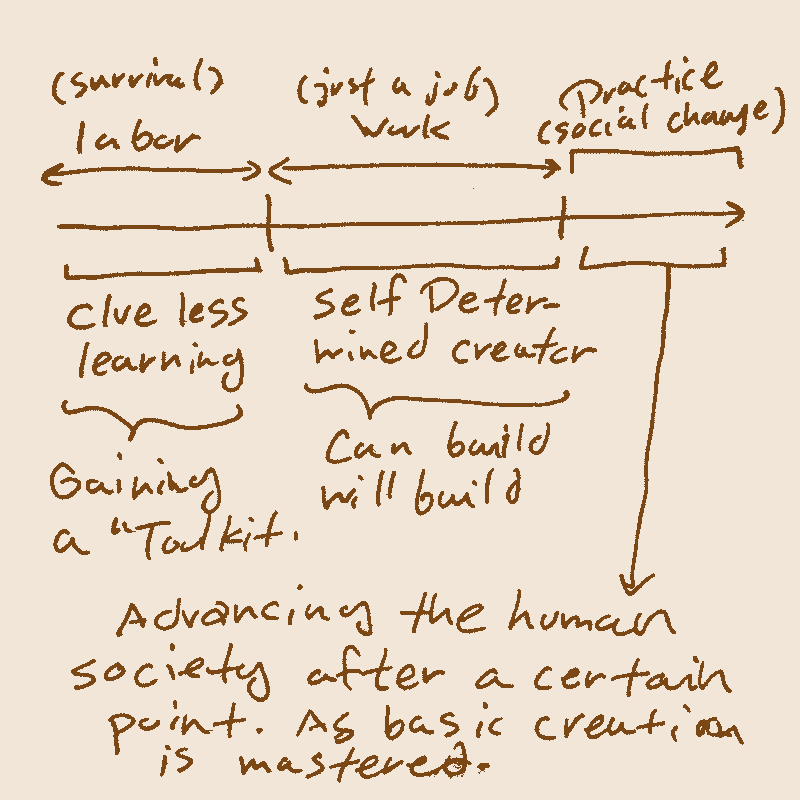 (survival)
labor
(just a job)
Work
Practice
(social change)
Clue less
learning
Self Deter-
mined creator
Gaining
a "Toolkit.
Can build
will build
Advancing the human
society after a certain
point. As basic creation
is mastered.